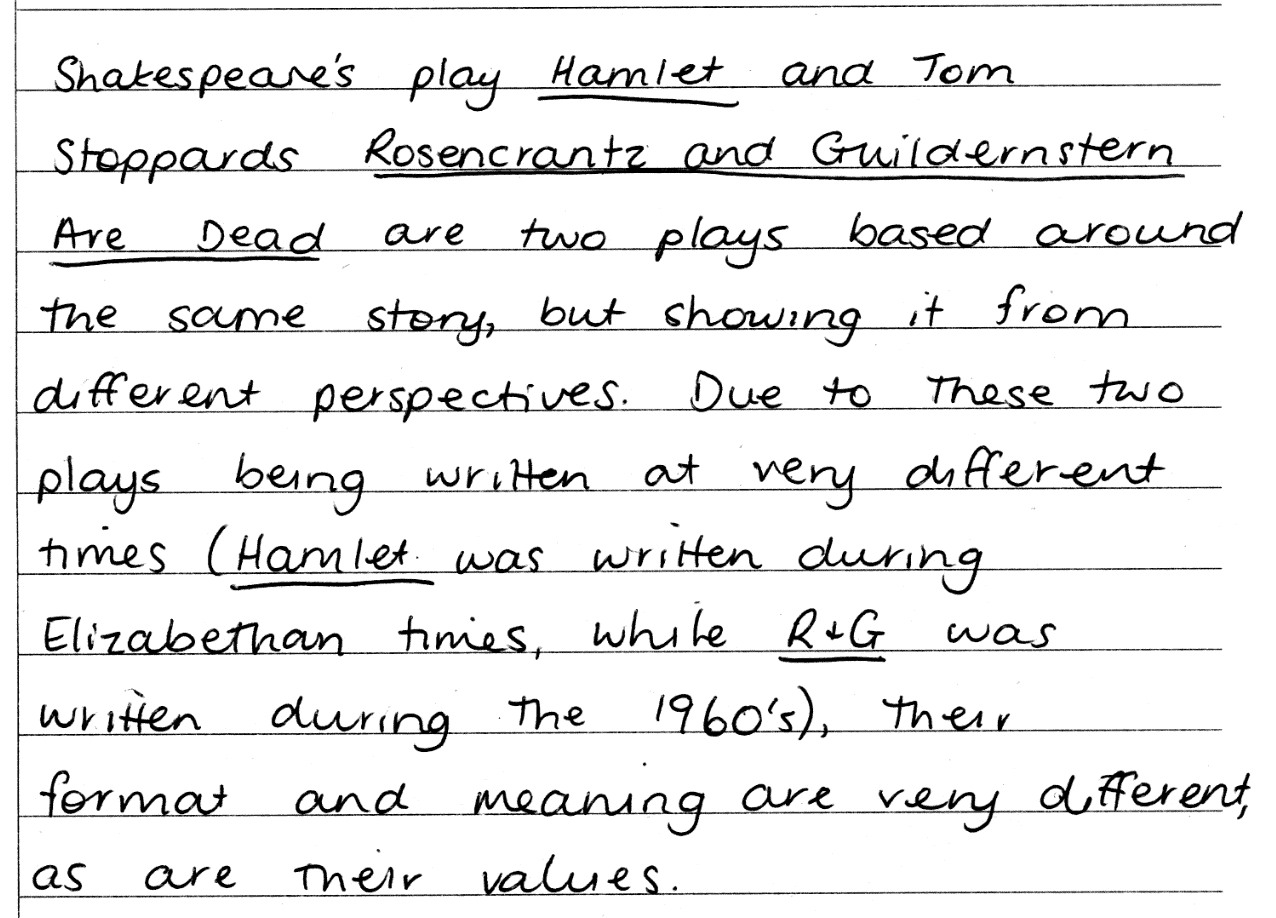 Shakespeare's play Hamlet and Tom
Stoppards Rosencrantz and Guildernstern
Are Dead are two plays based around
the same story, but showing it from
different perspectives. Due to these two
plays being written at very different
times (Hamlet was written during
Elizabethan times, while R+G was
written during the 1960's), their
format and meaning are very different,
as are their values.